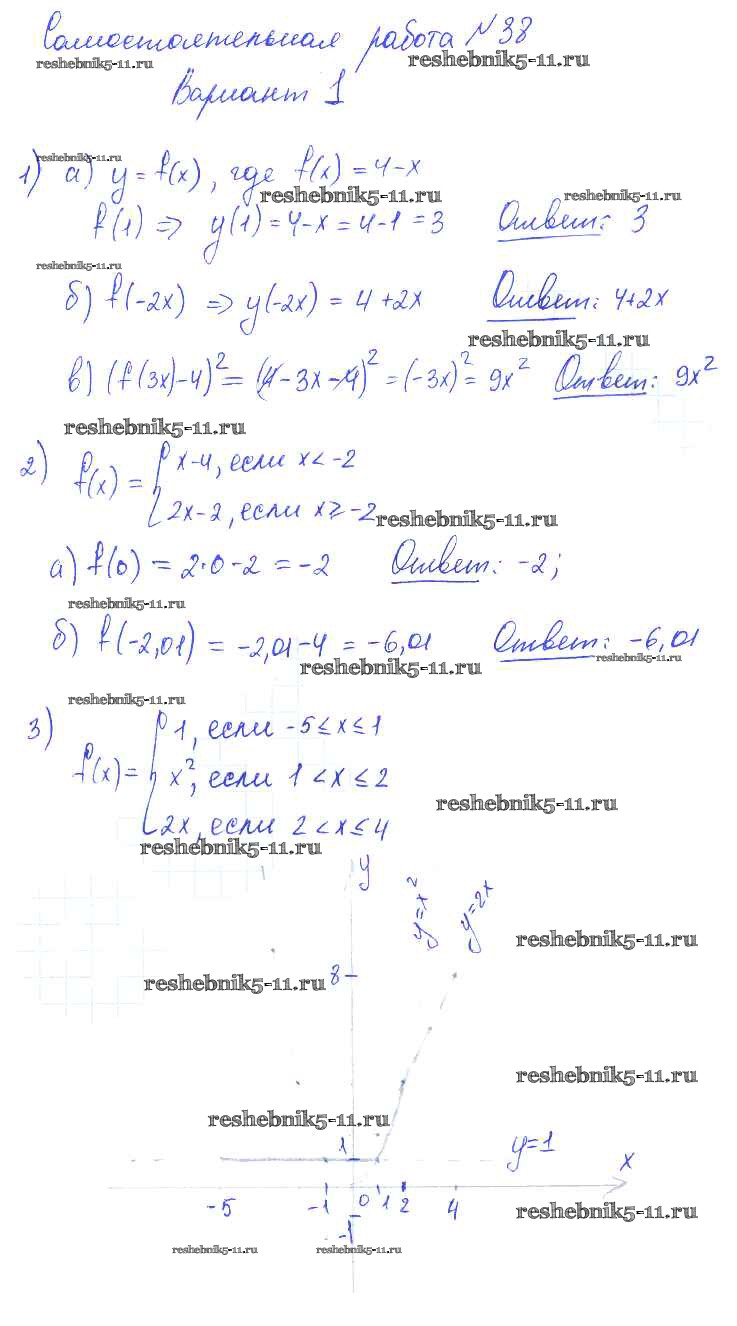 Самостоятельная работа №38
reshebnik5-11.ru reshebnik5-11.ru
Вариант 1
reshebnik5-11.ru
1) а) y = f(x), где f(x) = 4-x
reshebnik5-11.ru reshebnik5-11.ru
f(1) => y(1) = 4-x = 4-1 = 3 Ответ: 3
reshebnik5-11.ru
б) f(-2x) => y(-2x) = 4+2x Ответ: 4+2x
reshebnik5-11.ru
в) (f(3x)-4)² = (4-3x-4)² = (-3x)² = 9x² Ответ: 9x²
reshebnik5-11.ru
2) f(x) = { x-4, если x < -2
2x-2, если x ≥ -2
reshebnik5-11.ru
а) f(0) = 2·0-2 = -2 Ответ: -2;
reshebnik5-11.ru
б) f(-2,01) = -2,01-4 = -6,01 Ответ: -6,01
reshebnik5-11.ru reshebnik5-11.ru
reshebnik5-11.ru
3) f(x) = { 1, если -5 ≤ x ≤ 1
x², если 1 < x ≤ 2
reshebnik5-11.ru
2x, если 2 < x ≤ 4
reshebnik5-11.ru
y y=x² y=2x
reshebnik5-11.ru
reshebnik5-11.ru 8
reshebnik5-11.ru
reshebnik5-11.ru
1 y=1 x
-5 -1 0 1 2 4 reshebnik5-11.ru
-1
reshebnik5-11.ru reshebnik5-11.ru